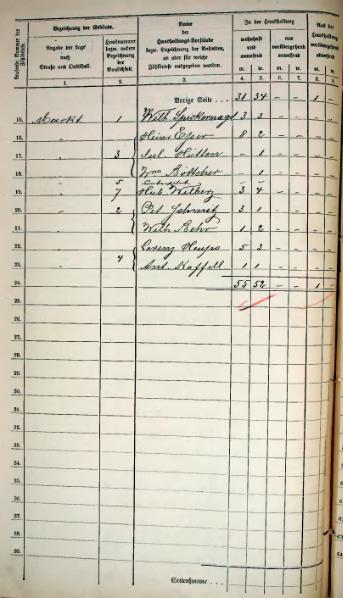 Bezeichnung der Gebäude.
Angabe der Lage nach Straße und Ortsteil.
Hausnummer bezw. andere Bezeichnung der Baulichkeit.
Name der Haushaltungs-Vorstände bezw. Bezeichnung der Anstalten, an oder für welche Zählbriefe ausgegeben wurden.
In der Haushaltung
wohnhaft und anwesend
nur vorübergehend anwesend
Aus der Haushaltung vorübergehend
m. w. m. w. m. w.
1. 2. 3. 4. 5. 6. 7. 8. 9.
Vorige Seite 31 34 – – 1 –
15. Markt 1 Wilh. Spickernagel 3 3 – – – –
16. Heinr. Esser 8 2 – – – –
17. " 3 Jul. Hutten – 1 – – – –
18. Wwe Böttcher – 1 – – – –
" 5 – – – – – –
19. " 7 Hub. Wilberz 3 4 – – – –
20. " 2 Pet. Schmitz 3 1 – – – –
21. " Wilh. Behr 1 2 – – – –
22. " 4 Lorenz 5 3 – – – –
23. Ant. 1 1 – – – –
24. 55 52 – – 1 –
25.
26.
27.
28.
29.
30.
31.
32.
33.
34.
35.
36.
37.
38.
39.
Seitensumme